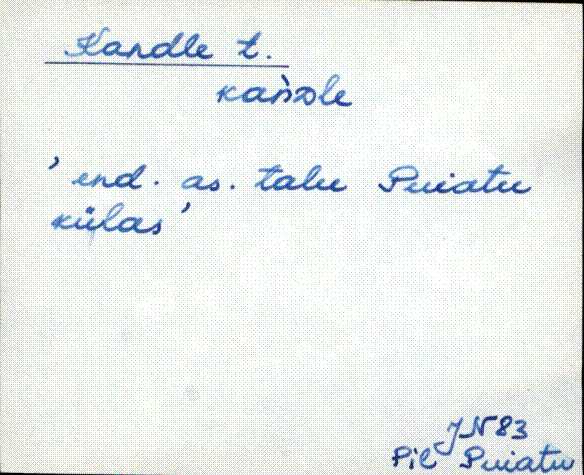 Kandle t.
kan̄dle
' end. as. talu Puiatu
külas '
JN 83
Pil Puiatu